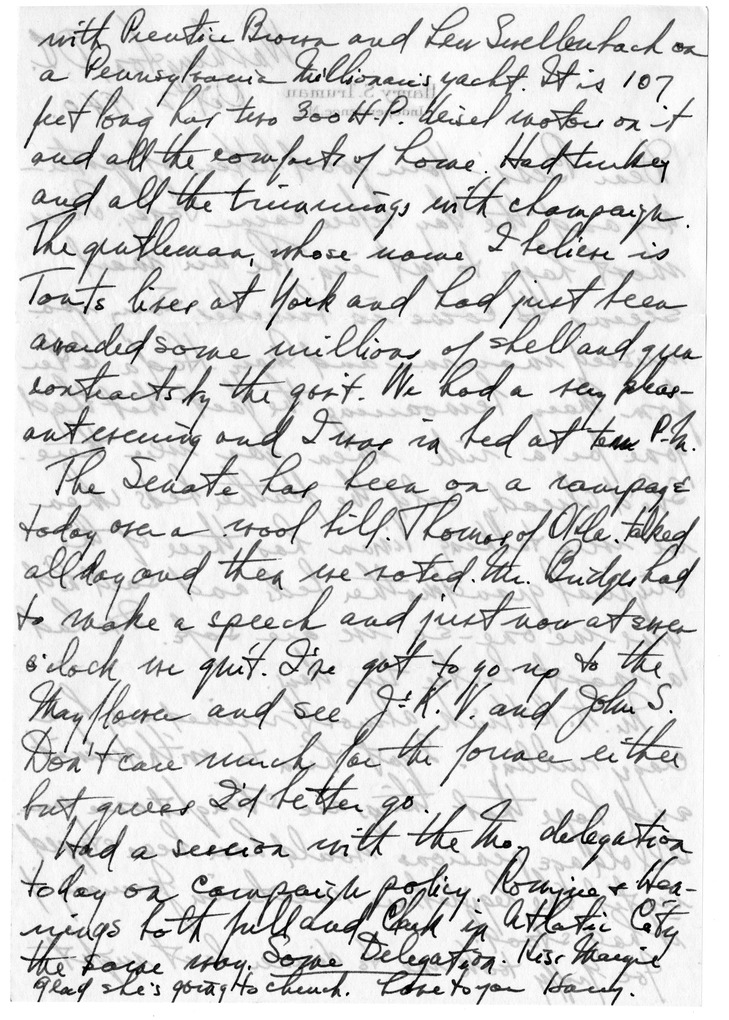 with Prentice Brown and Lew Swellenbach on
a Pennsylvania Millionair's yacht. It is 107
feet long has two 300 H.P. diesel motors on it
and all the comforts of home. Had turkey
and all the trimmings with champaign.
The gentleman, whose name I believe is
Tonts lives at York and had just been
awarded some millions of shell and gun
contracts by the gov't. We had a very pleas-
ant evening and I was in bed at ten P.M.
The Senate has been on a rampage
today over a wool bill. Thomas of Okla. talked
all day and then we voted. Mr. Bridges had
to make a speech and just now at seven
o'clock we quit. I've got to go up to the
Mayflower and see J. K. V. and John S.
Don't care much for the former either
but guess I'd better go.
Had a session with the Mo. delegation
today on campaign policy. Romjue & Hen-
nings both full and Clark in Atlantic City
the same way. Some Delegation. Kiss Margie
glad she's going to church. Love to you Harry.